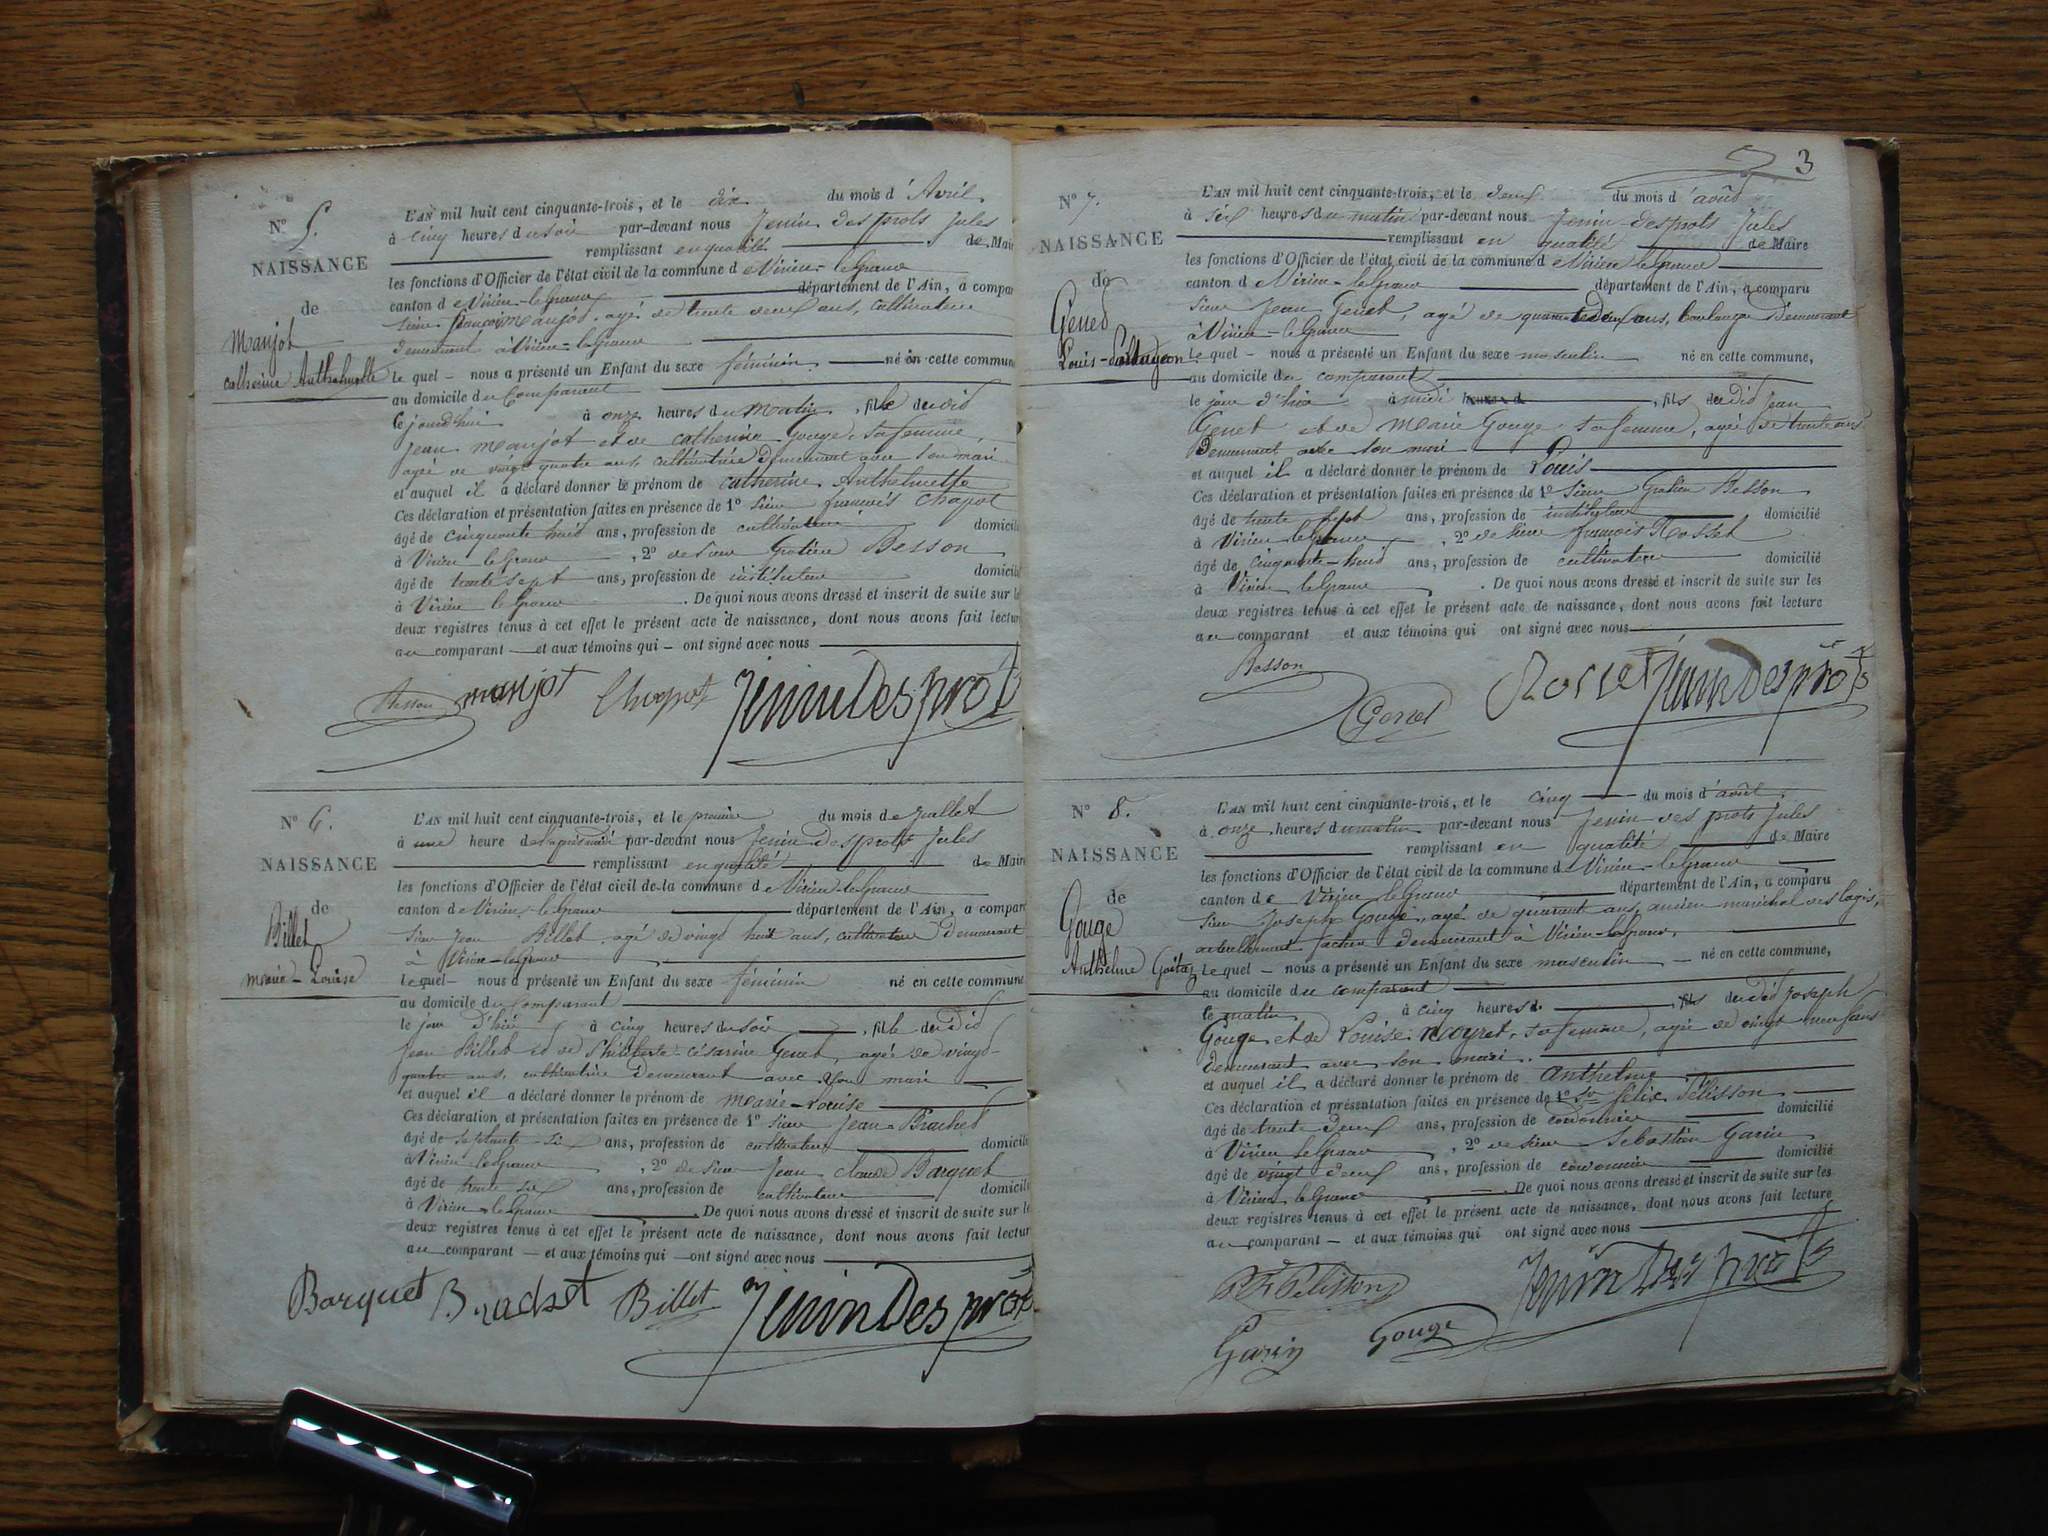 N° 5.
NAISSANCE
de
Maujot
catherine Anthelmette
L'AN mil huit cent cinquante-trois, et le dix du mois d'Avril
à cinq heures du soir par-devant nous Jenin des prots Jules
remplissant en qualité de Mair
les fonctions d'Officier de l'état civil de la commune de Virieu-le-Grand
canton de Virieu-le-Grand département de l'Ain, a compar
sieur françois Maujot, agé de trente deux ans, cultivateur
demeurant à Virieu-le-Grand
le quel - nous a présenté un Enfant du sexe féminin né en cette commune
au domicile du Comparant
le jourd'hui à onze heures du Matin, fille dudit
Jean Maujot et de catherine Gouge, sa femme,
agée de vingt quatre ans, cultivatrice demeurant avec son mari
et auquel il a déclaré donner le prénom de catherine Anthelmette
Ces déclaration et présentation faites en présence de 1° sieur françois Chapot
âgé de cinquante huit ans, profession de cultivateur domicili
à Virieu le Grand, 2° de sieur Gratien Besson
âgé de trente sept ans, profession de instituteur domicili
à Virieu le Grand. De quoi nous avons dressé et inscrit de suite sur le
deux registres tenus à cet effet le présent acte de naissance, dont nous avons fait lectur
au comparant - et aux témoins qui - ont signé avec nous
Besson maujot Chapot Jenin Des prots
N° 6.
NAISSANCE
de
Billet
marie-Louise
L'AN mil huit cent cinquante-trois, et le premier du mois de Juillet
à une heure de l'après midi par-devant nous Jenin Desprots Jules
remplissant en qualité de Maire
les fonctions d'Officier de l'état civil de la commune de Virieu-le-Grand
canton de Virieu-le-Grand département de l'Ain, a compar
sieur Jean Billet, agé de vingt huit ans, cultivateur demeurant
à Virieu-le-Grand
lequel - nous a présenté un Enfant du sexe féminin né en cette commune
au domicile du comparant
le jour d'hier à cinq heures du soir, fille dudit
Jean Billet et de Philiberte-césarine Genet, agée de vingt-
quatre ans, cultivatrice demeurant avec son mari
et auquel il a déclaré donner le prénom de marie-Louise
Ces déclaration et présentation faites en présence de 1° sieur Jean Brachet
âgé de septante-six ans, profession de cultivateur domicili
à Virieu le Grand, 2° de sieur Jean claude Barquet
âgé de trente six ans, profession de cultivateur domicili
à Virieu-le-Grand. De quoi nous avons dressé et inscrit de suite sur le
deux registres tenus à cet effet le présent acte de naissance, dont nous avons fait lectur
au comparant - et aux témoins qui - ont signé avec nous
Barquet Brachet Billet Jenin Des prots
3
N° 7.
NAISSANCE
de
Genet
Louis
L'AN mil huit cent cinquante-trois, et le deux du mois d'août
à six heures du matin par-devant nous Jenin-desprots Jules
remplissant en qualité de Maire
les fonctions d'Officier de l'état civil de la commune de Virieu le Grand
canton de Virieu-le-Grand département de l'Ain, a comparu
sieur Jean Genet, agé de quarante deux ans, boulanger demeurant
à Virieu-le-Grand
lequel - nous a présenté un Enfant du sexe masculin né en cette commune,
au domicile du comparant
le jour d'hier à midi heures d, fils dudit Jean
Genet et de Marie Gouge, sa femme, agée de trente ans
demeurant avec son mari
et auquel il a déclaré donner le prénom de Louis
Ces déclaration et présentation faites en présence de 1° sieur Gratien Besson
âgé de trente sept ans, profession de instituteur domicilié
à Virieu le Grand, 2° de sieur françois Rosset
âgé de cinquante-huit ans, profession de cultivateur domicilié
à Virieu le Grand. De quoi nous avons dressé et inscrit de suite sur les
deux registres tenus à cet effet le présent acte de naissance, dont nous avons fait lecture
au comparant et aux témoins qui ont signé avec nous
Besson Genet Rosset Jenin Des prots
N° 8.
NAISSANCE
de
Gouge
Anthelme
L'AN mil huit cent cinquante-trois, et le cinq du mois d'août
à onze heures du matin par-devant nous Jenin des prots Jules
remplissant en qualité de Maire
les fonctions d'Officier de l'état civil de la commune de Virieu-le Grand
canton de Virieu le Grand département de l'Ain, a comparu
sieur Joseph Gouge, agé de quarante ans, ancien maréchal des logis,
actuellement facteur demeurant à Virieu-le-grand.
lequel - nous a présenté un Enfant du sexe masculin - né en cette commune,
au domicile du comparant
le matin à cinq heures d, fils dudit Joseph
Gouge et de Louise Moyret, sa femme, agée de vingt neuf ans
demeurant avec son mari.
et auquel il a déclaré donner le prénom de Anthelme
Ces déclaration et présentation faites en présence de 1° Sr félix Pélisson
âgé de trente deux ans, profession de cordonnier domicilié
à Virieu le Grand, 2° de sieur Sebastien Garin
âgé de vingt deux ans, profession de cordonnier domicilié
à Virieu le Grand. De quoi nous avons dressé et inscrit de suite sur les
deux registres tenus à cet effet le présent acte de naissance, dont nous avons fait lecture
au comparant - et aux témoins qui ont signé avec nous
Pélisson Jenin Des prots
Garin Gouge